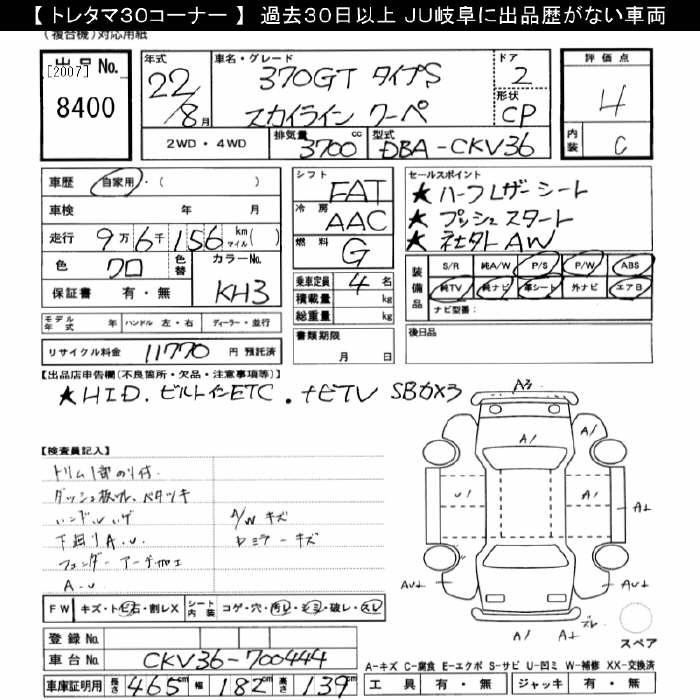 【トレタマ30コーナー】 過去30日以上 JU岐阜に出品歴がない車両
(複合機)対応用紙
出品No.
[2007]
8400
年式 22/8月
車名・グレード 370GT タイプS
スカイライン クーペ
ドア 2
形状 CP
評価点 4
内装 C
2WD・4WD
排気量 3700 cc
型式 DBA-CKV36
車歴 自家用・( )
車検 年 月
走行 9万6千156 km マイル( )
色 クロ 色替 カラーNo. KH3
保証書 有・無
シフト FAT
冷房 AAC
燃料 G
乗車定員 4名
積載量 kg
総重量 kg
書類期限
月 日
セールスポイント
★ハーフレザーシート
★プッシュスタート
★社外AW
装備品 S/R 純A/W P/S P/W ABS
純TV 純ナビ 革シート 外ナビ エアB
ナビ型番:
後日品
モデル年式 年 ハンドル 左・右 ディーラー・並行
リサイクル料金 11770 円 預託済
【出品店申告欄(不良箇所・欠品・注意事項等)】
★HID. ビルトインETC. ナビTV SBカメラ
【検査員記入】
トリム1部のり付.
ダッシュ板ズレ. ベタツキ
ハンドルハゲ
A/W キズ
下廻りA.U.
ドミラーキズ
フェンダーアーチ加工
A.U
A3
A1
A1
U1
A1
ズレ
スペア
FW キズ・トビ石・割レX シート内装 コゲ・穴・汚レ・シミ・破レ・スレ
登録No.
車台No. CKV36-700444
車庫証明用 長さ 465cm 幅 182cm 高さ 139cm
A-キズ C-腐食 E-エクボ S-サビ U-凹ミ W-補修 XX-交換済
工具 有・無 ジャッキ 有・無